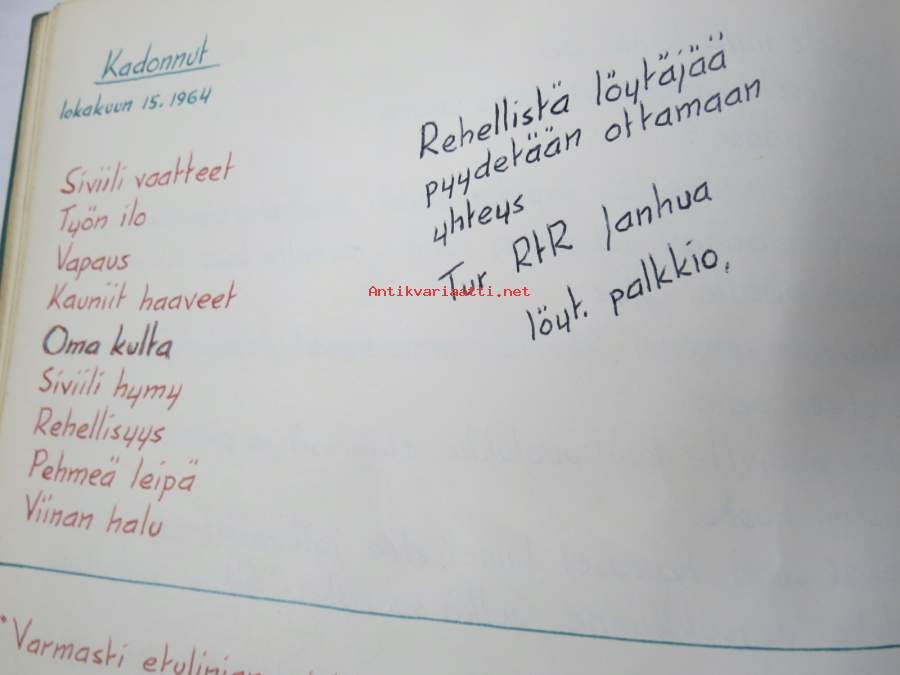 Kadonnut
lokakuun 15. 1964
Siviili vaatteet
Työn ilo
Vapaus
Kauniit haaveet
Oma kulta
Siviili hymy
Rehellisyys
Pehmeä leipä
Viinan halu
Rehellistä löytäjää
pyydetään ottamaan
yhteys
Tur RtR Janhua
löyt. palkkio.
Antikvariaatti.net
Varmasti